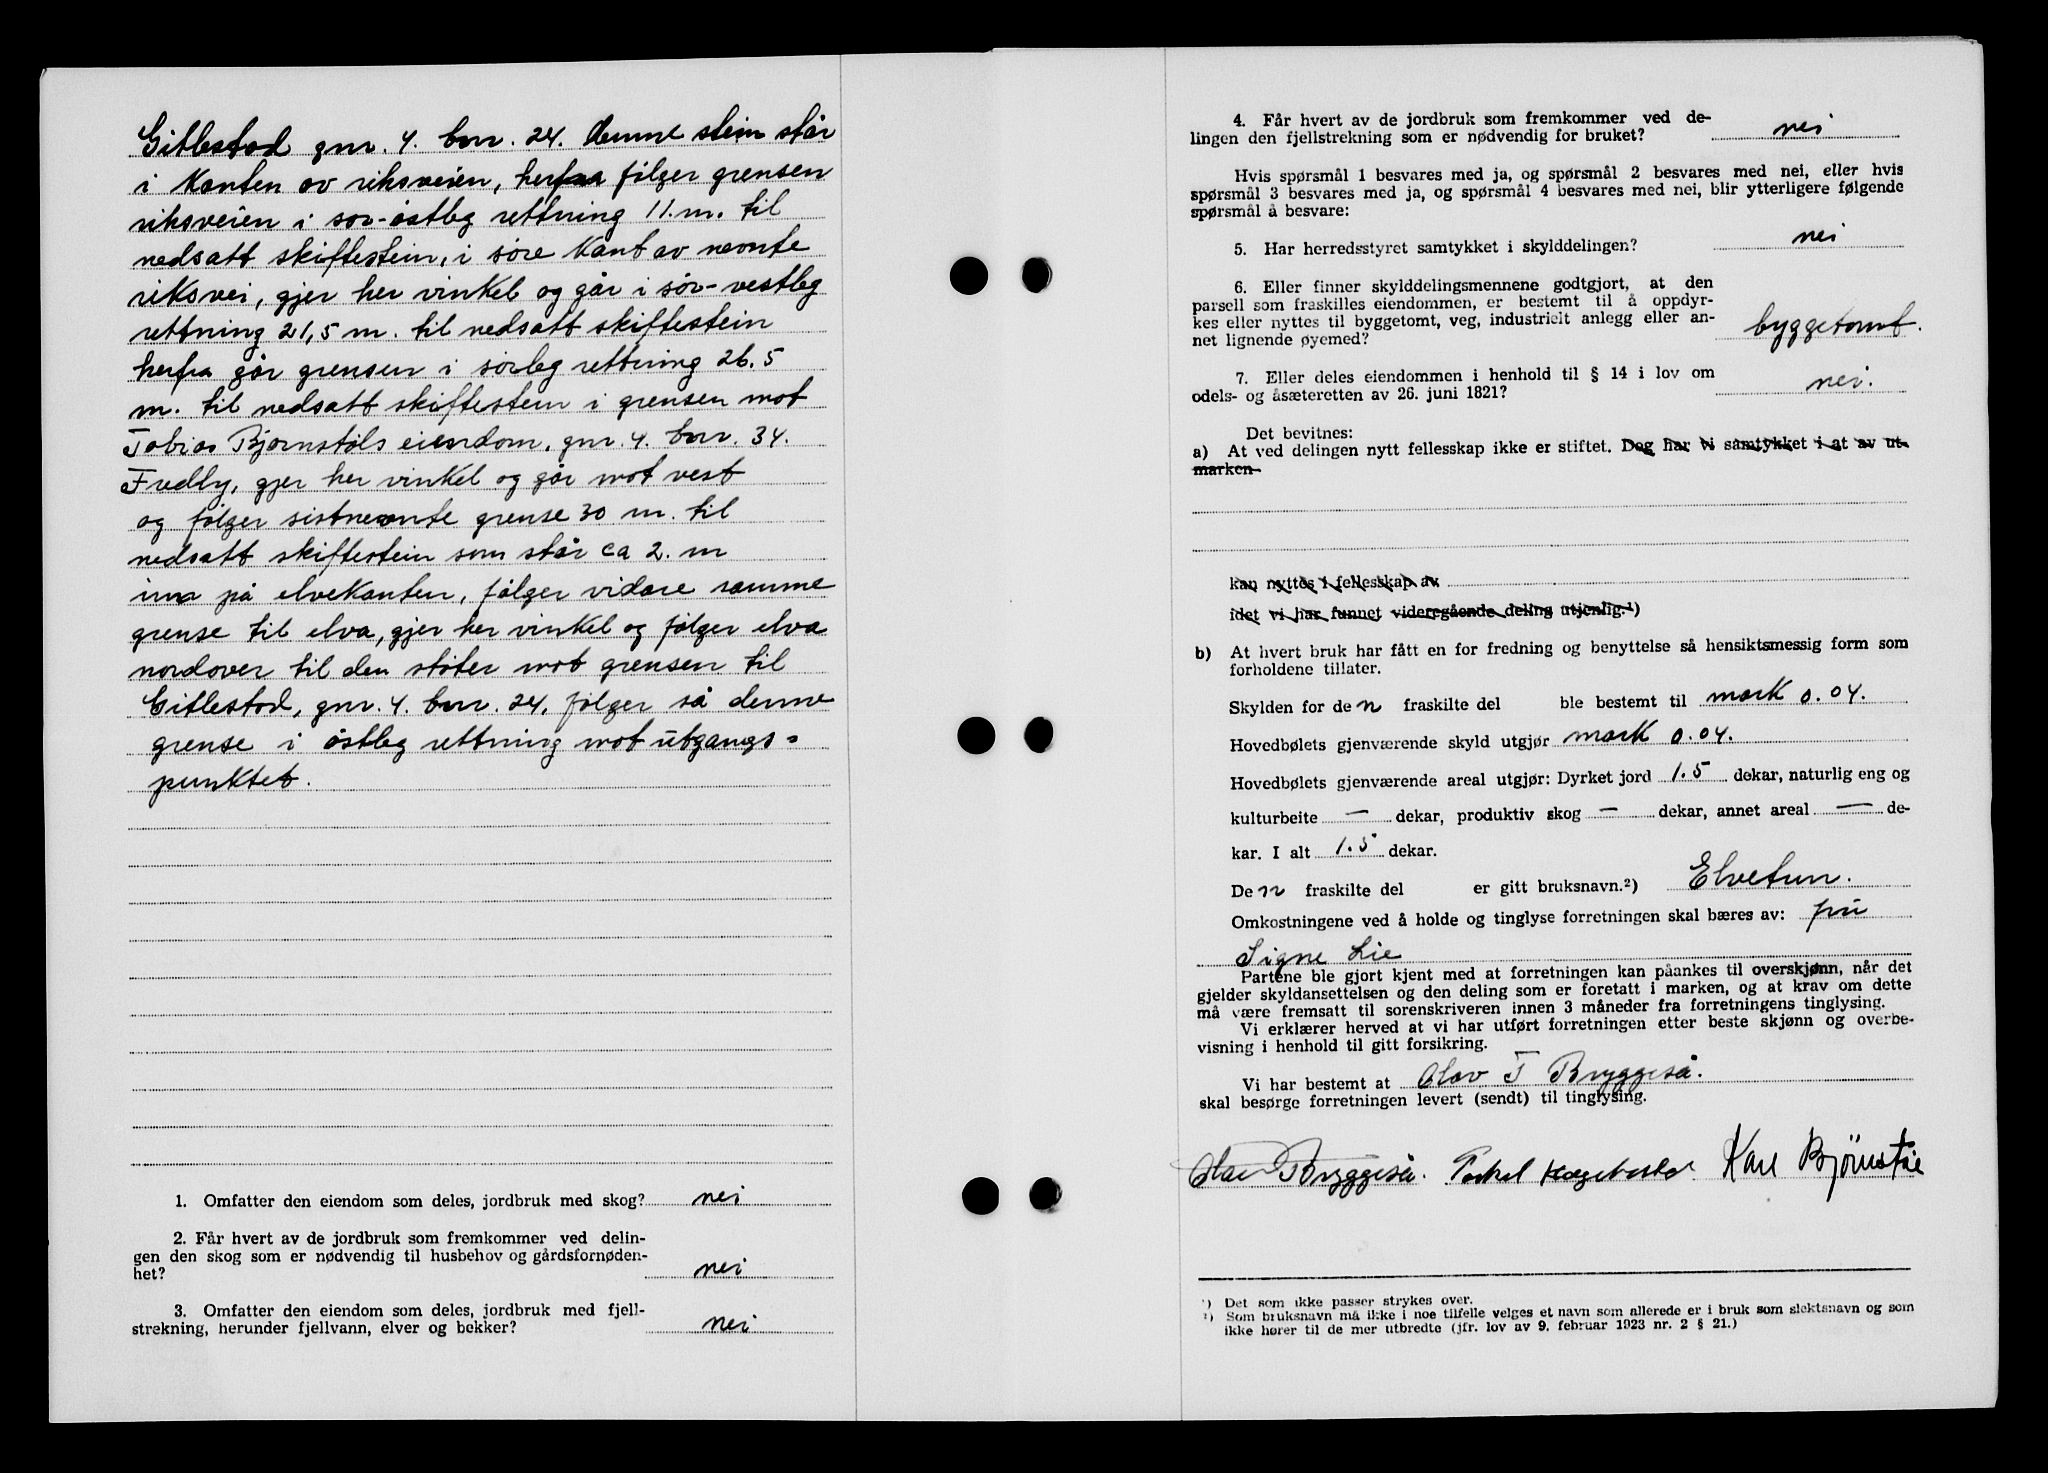 Gitlestad gnr. 4. bnr. 24. denne stein står
i Kanten av riksveien, herfra følger grensen
riksveien i sør-østleg rettning 11. m. til
nedsatt skiftestein, i søre Kant av nevnte
riksvei, gjer her vinkel og går i sør-vestleg
rettning 21,5 m. til nedsatt skiftestein
herfra går grensen i sørleg rettning 26.5
m. til nedsatt skiftestein i grensen mot
Tobias Bjørnstøls eiendom, gnr. 4. bnr. 34.
Fredly, gjer her vinkel og går mot vest
og følger sistnevnte grense 30 m. til
nedsatt skiftestein som står ca 2. m
inna på elvekanten, følger vidare samme
grense til elva, gjer her vinkel og følger elva
nordover til den støter mot grensen til
Gitlestad, gnr. 4. bnr. 24, følger så denne
grense i østleg rettning mot utgangs=
punktet.
1. Omfatter den eiendom som deles, jordbruk med skog? nei
2. Får hvert av de jordbruk som fremkommer ved delin-
gen den skog som er nødvendig til husbehov og gårdsfornøden-
het? nei
3. Omfatter den eiendom som deles, jordbruk med fjell-
strekning, herunder fjellvann, elver og bekker? nei
4. Får hvert av de jordbruk som fremkommer ved de-
lingen den fjellstrekning som er nødvendig for bruket? nei
Hvis spørsmål 1 besvares med ja, og spørsmål 2 besvares med nei, eller hvis
spørsmål 3 besvares med ja, og spørsmål 4 besvares med nei, blir ytterligere følgende
spørsmål å besvare:
5. Har herredsstyret samtykket i skylddelingen? nei
6. Eller finner skylddelingsmennene godtgjort, at den
parsell som fraskilles eiendommen, er bestemt til å oppdyr-
kes eller nyttes til byggetomt, veg, industrielt anlegg eller an-
net lignende øyemed? byggetomt.
7. Eller deles eiendommen i henhold til § 14 i lov om
odels- og åsæteretten av 26. juni 1821? nei.
Det bevitnes:
a) At ved delingen nytt fellesskap ikke er stiftet. Dog har vi samtykket i at av ut-
marken
kan nyttes i fellesskap av
idet vi har funnet videregående deling utjenlig.¹)
b) At hvert bruk har fått en for fredning og benyttelse så hensiktsmessig form som
forholdene tillater.
Skylden for den fraskilte del ble bestemt til mark 0.04.
Hovedbølets gjenværende skyld utgjør mark 0.04.
Hovedbølets gjenværende areal utgjør: Dyrket jord 1.5 dekar, naturlig eng og
kulturbeite — dekar, produktiv skog — dekar, annet areal — de-
kar. I alt 1.5 dekar.
Den fraskilte del er gitt bruksnavn.²) Elvetun.
Omkostningene ved å holde og tinglyse forretningen skal bæres av: fru
Signe Lie
Partene ble gjort kjent med at forretningen kan påankes til overskjønn, når det
gjelder skyldansettelsen og den deling som er foretatt i marken, og at krav om dette
må være fremsatt til sorenskriveren innen 3 måneder fra forretningens tinglysing.
Vi erklærer herved at vi har utført forretningen etter beste skjønn og overbe-
visning i henhold til gitt forsikring.
Vi har bestemt at Olav T Bryggeså.
skal besørge forretningen levert (sendt) til tinglysing.
Olav Bryggeså. Torkel Hægebostad Karl Bjørnstøl
¹) Det som ikke passer strykes over.
²) Som bruksnavn må ikke i noe tilfelle velges et navn som allerede er i bruk som slektsnavn og som
ikke hører til de mer utbredte (jfr. lov av 9. februar 1923 nr. 2 § 21.)